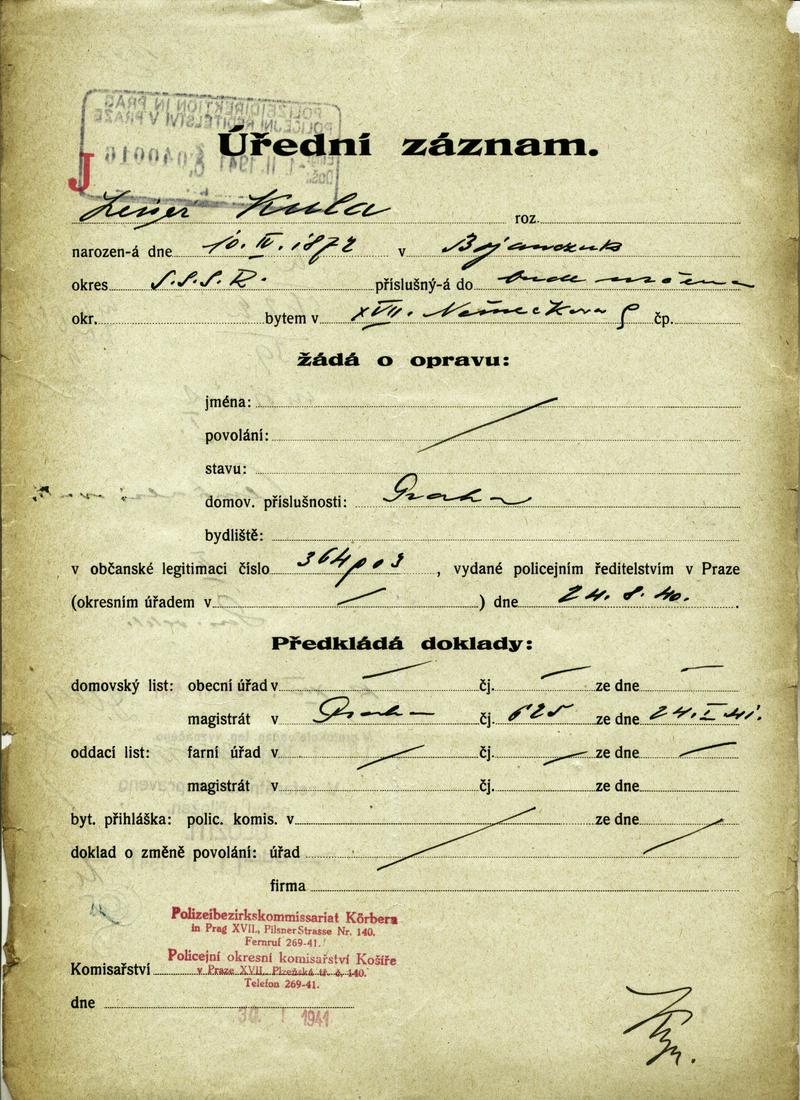 POLIZEIDIREKTION IN PRAG
POLICEJNÍ ŘEDITELSTVÍ V PRAZE
-1. II. 1941 040016
Úřední záznam.
J
Lejser Kula roz.
narozen-á dne 10. IV. 1872 v
okres S.S.S.R. příslušný-á do bude určena
okr. bytem v XVII. Němečkova 9 čp.
žádá o opravu:
jména:
povolání:
stavu:
domov. příslušnosti: Praha
bydliště:
v občanské legitimaci číslo , vydané policejním ředitelstvím v Praze
(okresním úřadem v ) dne 24. 8. 40.
Předkládá doklady:
domovský list: obecní úřad v čj. ze dne
magistrát v Praha čj. 625 ze dne 24. I 41.
oddací list: farní úřad v čj. ze dne
magistrát v čj. ze dne
byt. přihláška: polic. komis. v ze dne
doklad o změně povolání: úřad
firma
Polizeibezirkskommissariat Körbern
in Prag XVII., Pilsner Strasse Nr. 140.
Fernruf 269-41.
Policejní okresní komisařství Košíře
Komisařství v Praze XVII., Plzeňská tř. č. 140.
Telefon 269-41.
dne 30. I 1941